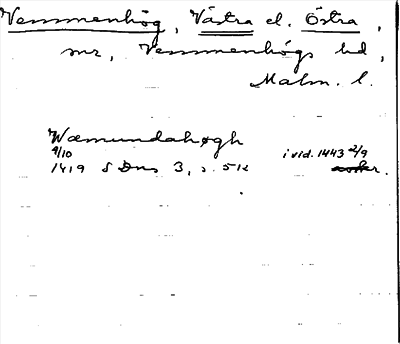 Vemmenhög, Västra el. Östra,
snr, Vemmenhögs hd,
Malm. l.
Wæmundahøgh
9/10 i vid. 1443 2/9
1419 SDns 3, s. 512 r.